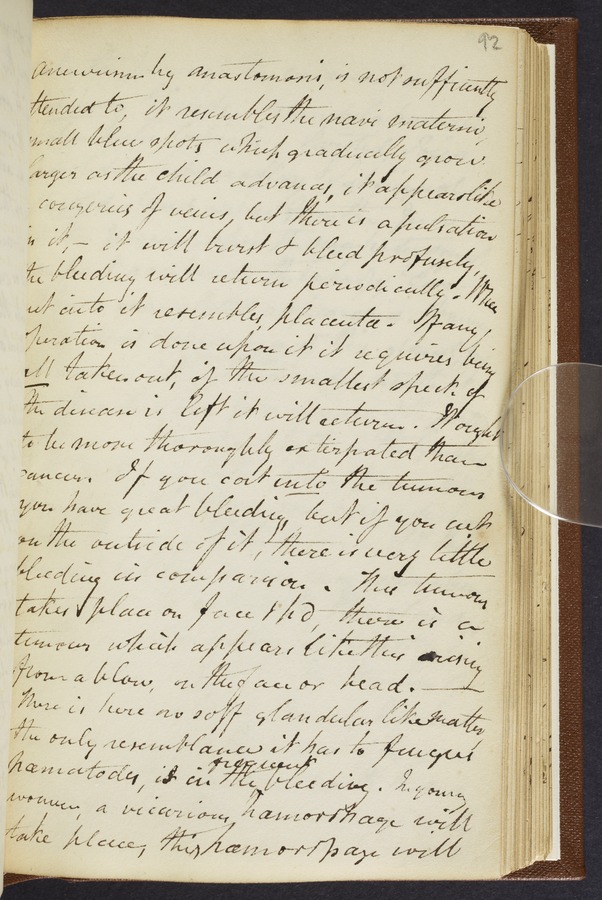 92
aneurism by anastomosis, is not sufficiently
ttended to, it resembles the nævi materni,
small blue spots which gradually grow
larger as the child advances, it appears like
congeries of veins, but there is a pulsation
in it, — it will burst & bleed profusely,
the bleeding will return periodically. When
cut into it resembles placenta. If any
operation is done upon it it requires being
all taken out, if the smallest speck of
the disease is left it will return. It ought
to be more thoroughly extirpated than
cancer. If you cut into the tumour
you have great bleeding, but if you cut
on the outside of it, there is very little
bleeding in comparison. This tumour
takes place on face & hd, there is a
tumour which appears like this arising
from a blow, on the face or head. —
There is here no soft glandular like matter,
the only resemblance it has to fungus
hæmatodes, is in the frequent bleeding. In young
women, a vicarious hæmorrhage will
take place, this hæmorrhage will